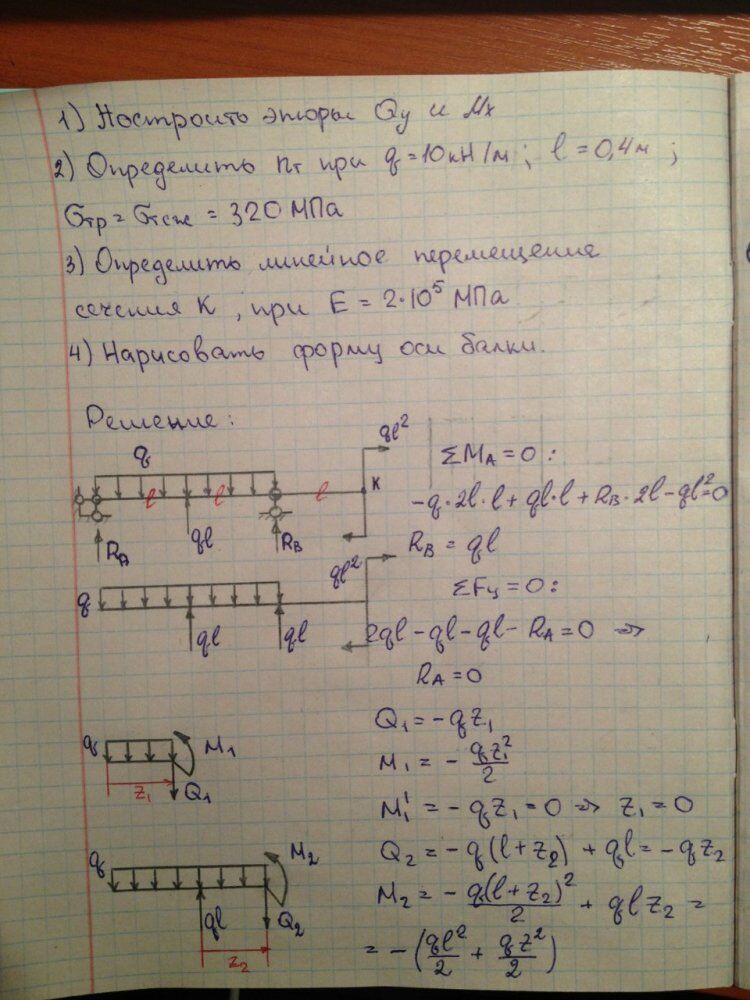 1) Построить эпюры Qy и Mx
2) Определить nт при q=10кН/м; l=0,4м;
σтр=σтсж=320 МПа
3) Определить линейное перемещение
сечения К, при E=2·10⁵ МПа
4) Нарисовать форму оси балки.
Решение:
ql²
q
K
l l l
RA
ql
RB
ΣMA=0:
-q·2l·l+ql·l+RB·2l-ql²=0
RB=ql
ql²
q
ql
ql
ΣFy=0:
2ql-ql-ql-RA=0 ⇒
RA=0
q
M1
z1
Q1
Q1=-qz1
M1=-qz1²/2
M1'=-qz1=0 ⇒ z1=0
q
M2
ql
Q2
z2
Q2=-q(l+z2)+ql=-qz2
M2=-q(l+z2)²/2+qlz2=
=-(ql²/2+qz²/2)